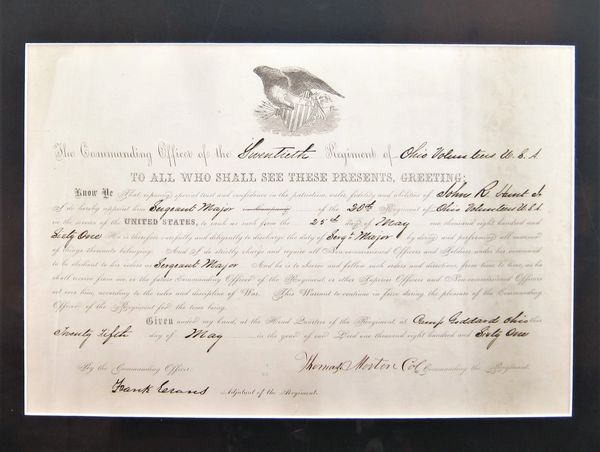 The Commanding Officer of the Twentieth Regiment of Ohio Volunteers U. S. A
TO ALL WHO SHALL SEE THESE PRESENTS, GREETING:
Know Ye That, reposing special trust and confidence in the patriotism, valor, fidelity and abilities of John R.
I do hereby appoint him Sergeant Major of the 20th Regiment of Ohio Volunteers U.S.A
in the service of the UNITED STATES, to rank as such from the 25th day of May one thousand eight hundred and
Sixty One He is therefore carefully and diligently to discharge the duty of Serg't Major by doing and performing all manner
of things thereunto belonging. And I do strictly charge and require all Non-commissioned Officers and Soldiers under his command
to be obedient to his orders as Sergeant Major And he is to observe and follow such orders and directions, from time to time, as he
shall receive from me, or the future Commanding Officer of the Regiment, or other Superior Officers and Non-commissioned Officers
set over him, according to the rules and discipline of War. This Warrant to continue in force during the pleasure of the Commanding
Officer of the Regiment for the time being.
Given under my hand, at the Head Quarters of the Regiment, at Camp Goddard Ohio this
Twenty Fifth day of May in the year of our Lord one thousand eight hundred and Sixty One
By the Commanding Officer: Thomas Morton Col Commanding the Regiment.
Frank Evans Adjutant of the Regiment.